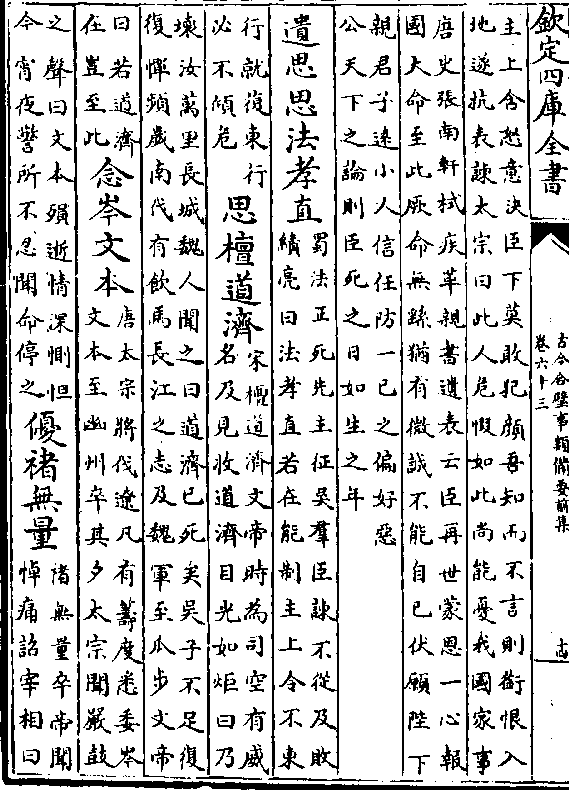 欽定四庫全書
古今合璧事類備要前集
卷六十三
主上含怒意決臣下莫敢犯顔吾知而不言則銜恨入
地遂抗表諫太宗曰此人危惙如此尚能憂我國家事
唐史張南軒栻疾革親書遺表云臣再世蒙恩一心報
國大命至此厥命無踪猶有微誠不能自已伏願陛下
親君子遠小人信任防一已之偏好惡
公天下之論則臣死之日如生之年
遺思思法孝直蜀法正死先主征吳羣臣諫不從及敗
績亮曰法孝直若在能制主上令不東
行就復東行
必不傾危思檀道濟宋檀道濟文帝時為司空有威
名及見收道濟目光如炬曰乃
壞汝萬里長城魏人聞之曰道濟已死矣吳子不足復
復憚頻歲南伐有飲馬長江之志及魏軍至瓜步文帝
曰若道濟
在豈至此念岑文本唐太宗將伐遼凡有籌度悉委岑
文本至幽州卒其夕太宗聞嚴鼓
之聲曰文本殞逝情深惻怛
今宵夜警所不忍聞命停之優禇無量禇無量卒帝聞
悼痛詔宰相曰